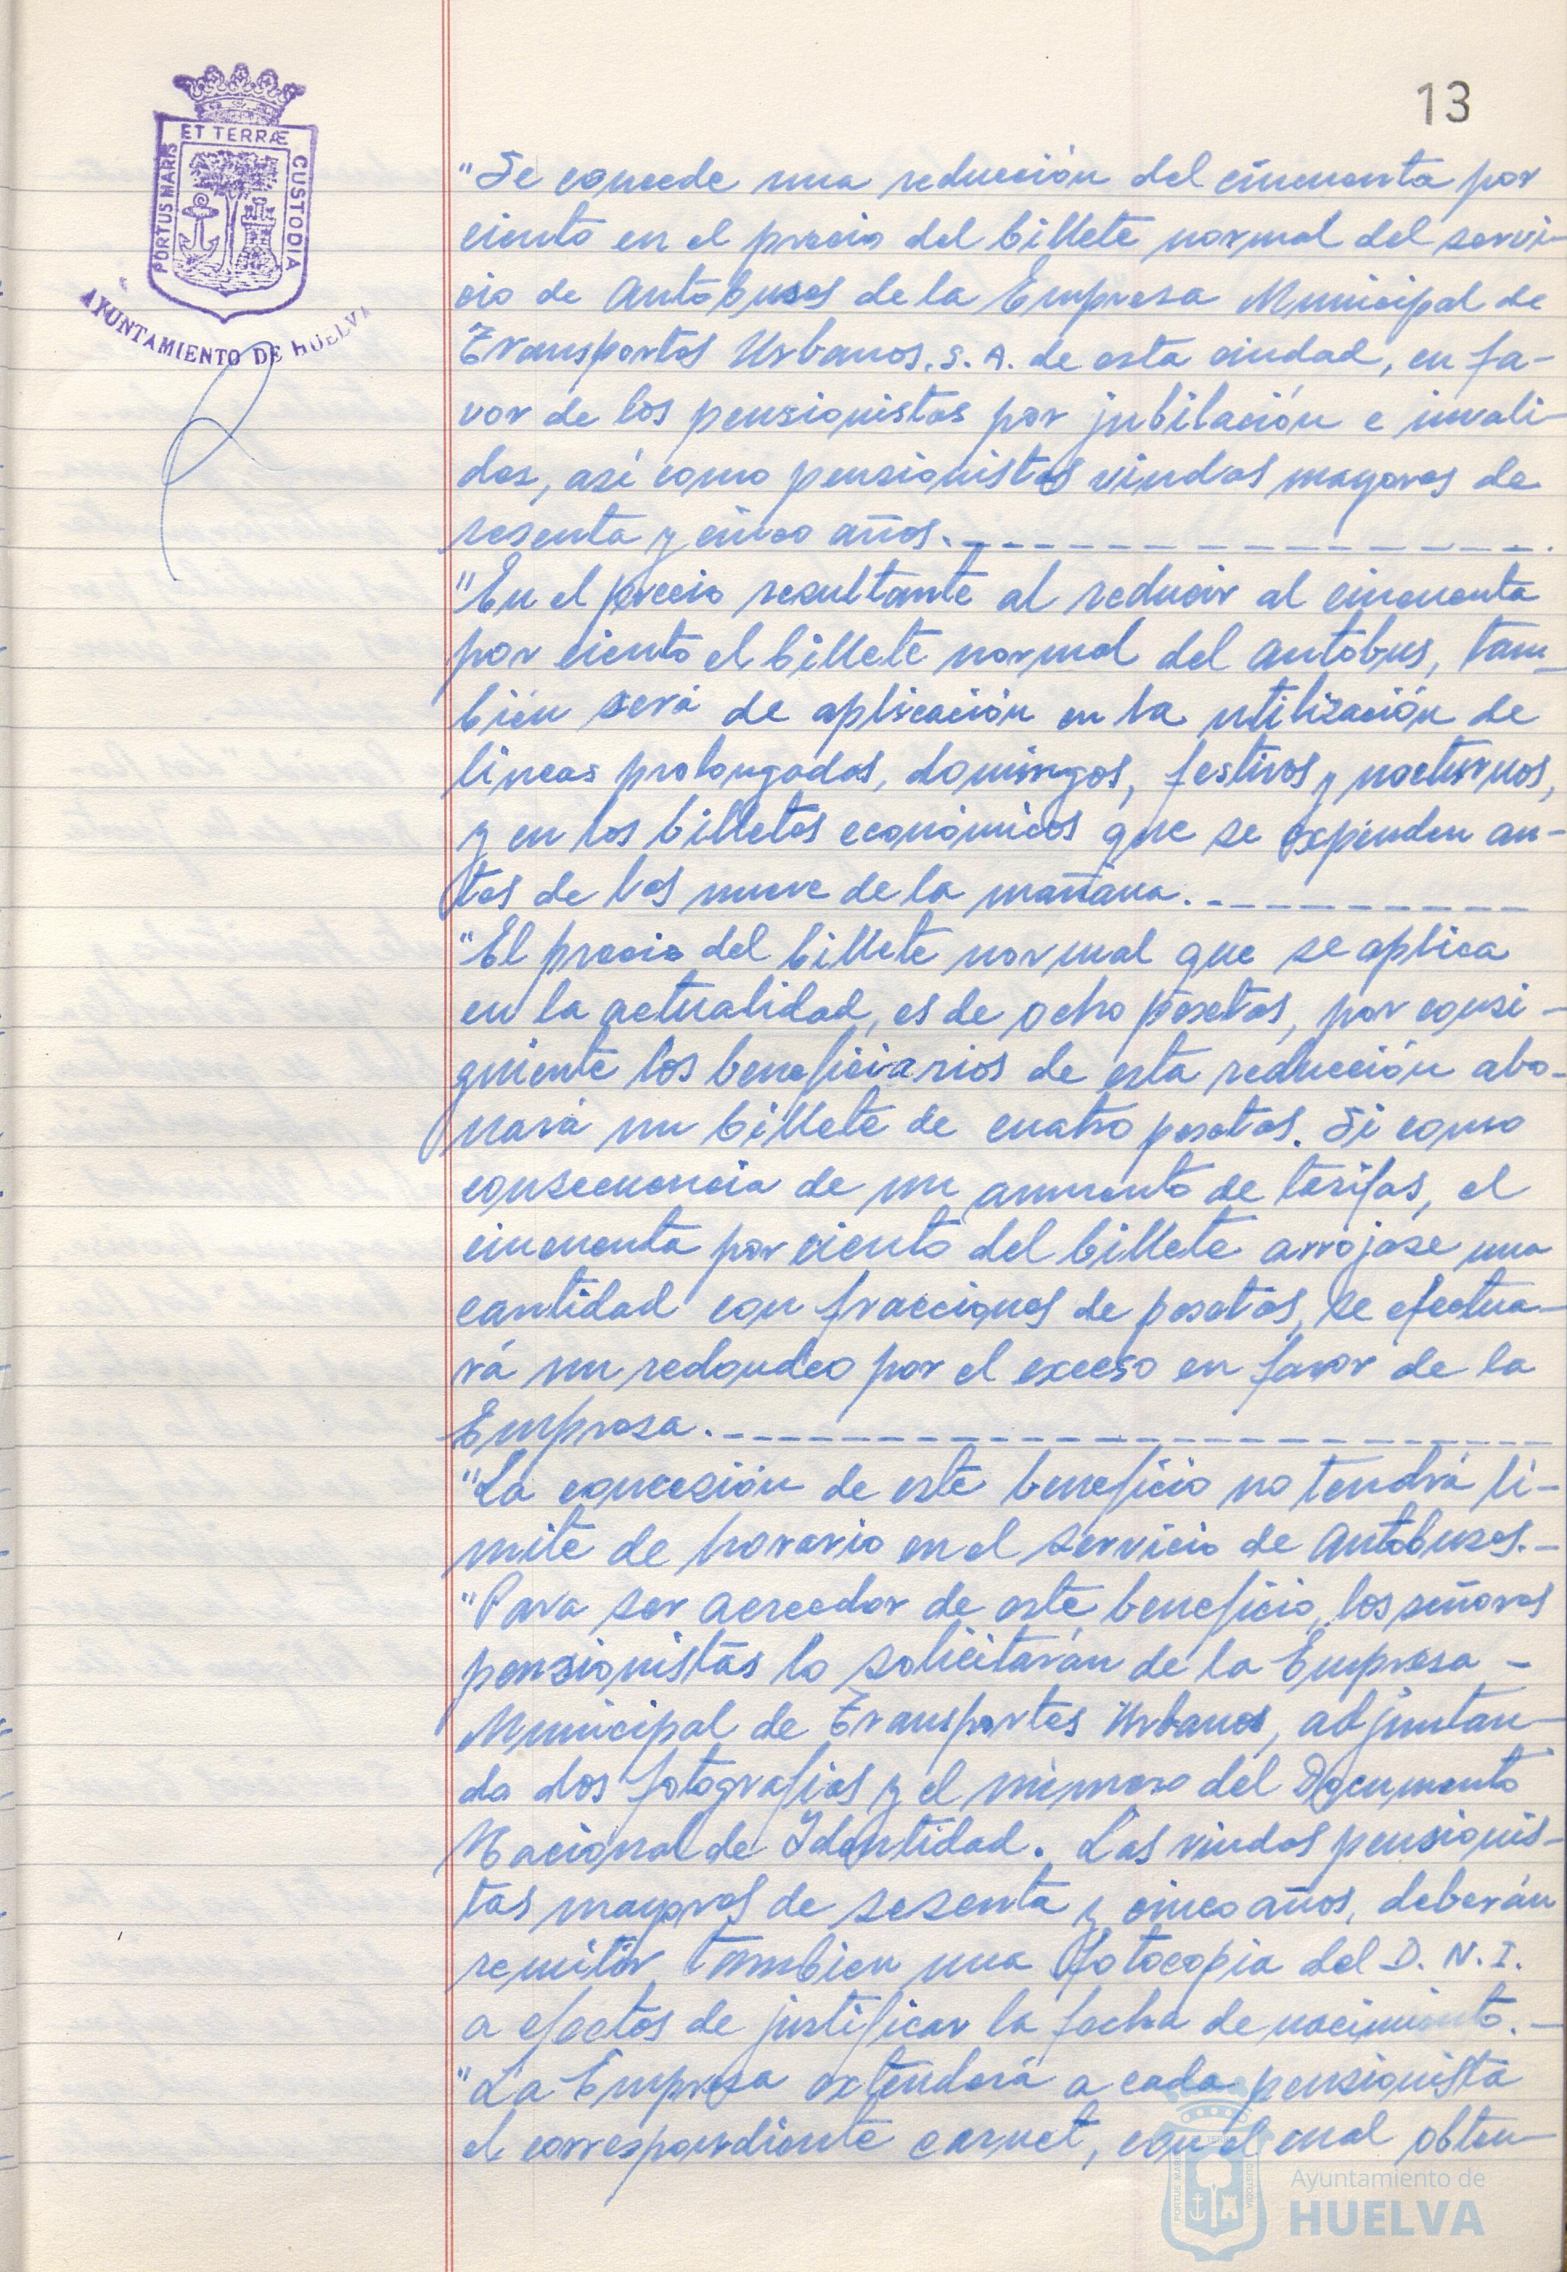 13
ET TERRÆ
PORTUS MARIS
CUSTODIA
AYUNTAMIENTO DE HUELVA
"Se concede una reducción del cincuenta por
ciento en el precio del billete normal del servi-
cio de Autobuses de la Empresa Municipal de
Transportes Urbanos, S. A. de esta ciudad, en fa-
vor de los pensionistas por jubilación e invali-
dez, así como pensionistas viudas mayores de
sesenta y cinco años.
"En el precio resultante al reducir al cincuenta
por ciento el billete normal del autobus, tam-
bién será de aplicación en la utilización de
líneas prolongadas, domingos, festivos y nocturnos,
y en los billetes económicos que se expenden an-
tes de las nueve de la mañana.
"El precio del billete normal que se aplica
en la actualidad, es de ocho pesetas, por consi-
guiente los beneficiarios de esta reducción abo-
nará un billete de cuatro pesetas. Si como
consecuencia de un aumento de tarifas, el
cincuenta por ciento del billete arrojase una
cantidad con fracciones de pesetas, se efectua-
rá un redondeo por el exceso en favor de la
Empresa.
"La concesión de este beneficio no tendrá lí-
mite de horario en el servicio de Autobuses.-
"Para ser acreedor de este beneficio, los señores
pensionistas lo solicitarán de la Empresa -
Municipal de Transportes Urbanos, adjuntan-
do dos fotografías y el número del Documento
Nacional de Identidad. Las viudas pensionis-
tas mayores de sesenta y cinco años, deberán
remitir tambien una fotocopia del D. N. I.
a efectos de justificar la fecha de nacimiento.-
"La Empresa extenderá a cada pensionista
el correspondiente carnet, con el cual obten-
Ayuntamiento de
HUELVA